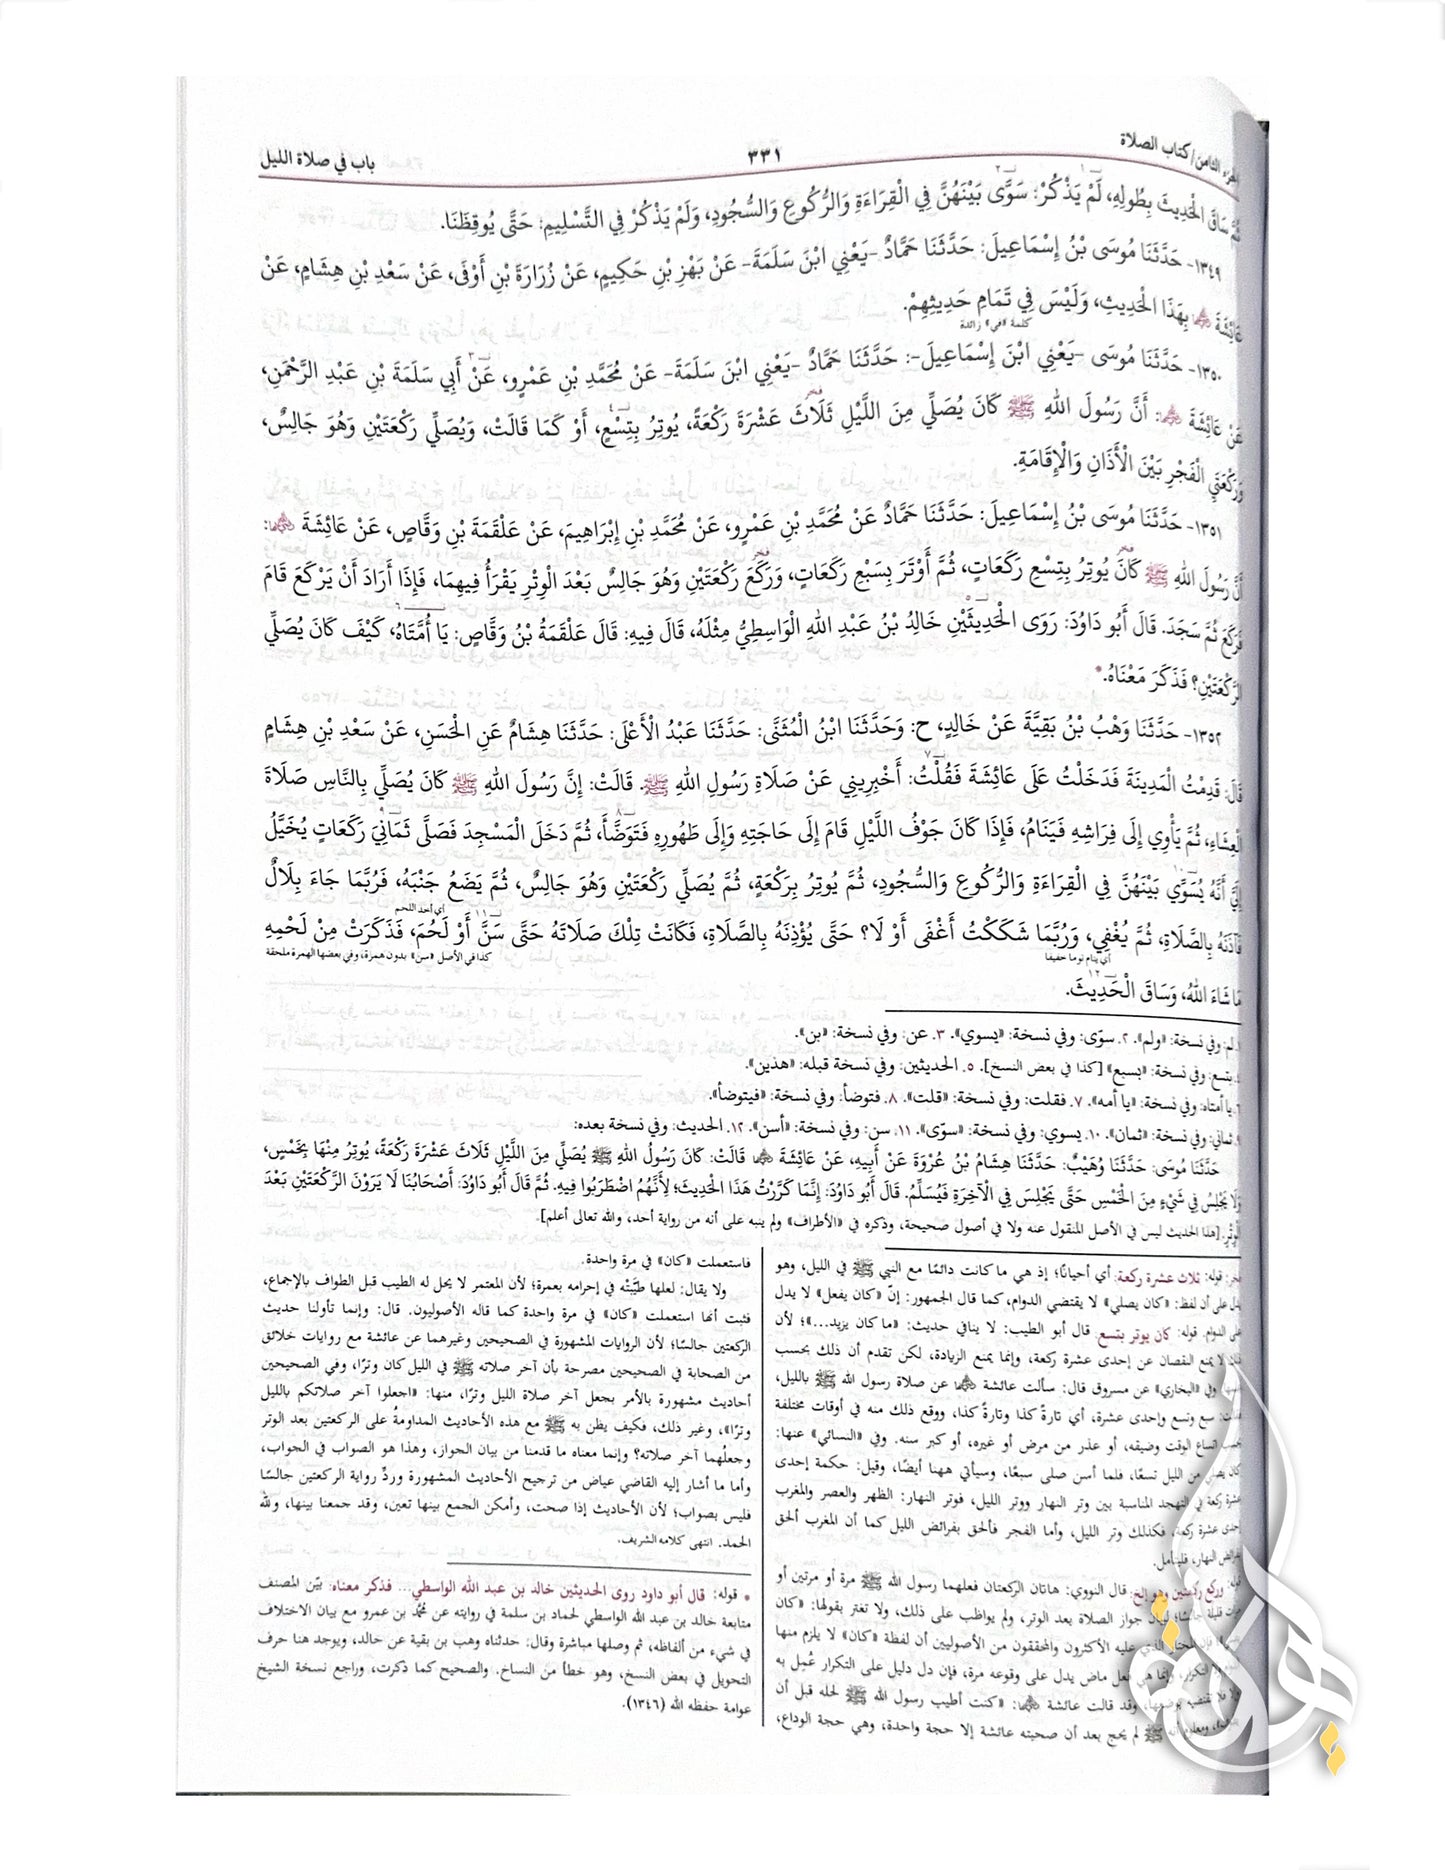 الجزء الثامن/كتاب الصلاة
٣٣١
باب في صلاة الليل
ثُمَّ سَاقَ الْحَدِيثَ بِطُولِهِ، لَمْ يَذْكُرْ: سَوَّى بَيْنَهُنَّ فِي الْقِرَاءَةِ وَالرُّكُوعِ وَالسُّجُودِ، وَلَمْ يَذْكُرْ فِي التَّسْلِيمِ: حَتَّى يُوقِظَنَا.
١٣٤٩- حَدَّثَنَا مُوسَى بْنُ إِسْمَاعِيلَ: حَدَّثَنَا حَمَّادٌ -يَعْنِي ابْنَ سَلَمَةَ- عَنْ بَهْزِ بْنِ حَكِيمٍ، عَنْ زُرَارَةَ بْنِ أَوْفَى، عَنْ سَعْدِ بْنِ هِشَامٍ، عَنْ
عَائِشَةَ رضي الله عنها بِهَذَا الْحَدِيثِ، وَلَيْسَ فِي تَمَامِ حَدِيثِهِمْ.
كلمة «في» زائدة
١٣٥٠- حَدَّثَنَا مُوسَى -يَعْنِي ابْنَ إِسْمَاعِيلَ-: حَدَّثَنَا حَمَّادٌ -يَعْنِي ابْنَ سَلَمَةَ- عَنْ مُحَمَّدِ بْنِ عَمْرٍو، عَنْ أَبِي سَلَمَةَ بْنِ عَبْدِ الرَّحْمَنِ،
عَنْ عَائِشَةَ رضي الله عنها: أَنَّ رَسُولَ اللهِ ﷺ كَانَ يُصَلِّي مِنَ اللَّيْلِ ثَلَاثَ عَشْرَةَ رَكْعَةً، يُوتِرُ بِتِسْعٍ، أَوْ كَمَا قَالَتْ، وَيُصَلِّي رَكْعَتَيْنِ وَهُوَ جَالِسٌ،
وَرَكْعَتَيِ الْفَجْرِ بَيْنَ الْأَذَانِ وَالْإِقَامَةِ.
١٣٥١- حَدَّثَنَا مُوسَى بْنُ إِسْمَاعِيلَ: حَدَّثَنَا حَمَّادٌ عَنْ مُحَمَّدِ بْنِ عَمْرٍو، عَنْ مُحَمَّدِ بْنِ إِبْرَاهِيمَ، عَنْ عَلْقَمَةَ بْنِ وَقَّاصٍ، عَنْ عَائِشَةَ رضي الله عنها:
أَنَّ رَسُولَ اللهِ ﷺ كَانَ يُوتِرُ بِتِسْعِ رَكَعَاتٍ، ثُمَّ أَوْتَرَ بِسَبْعِ رَكَعَاتٍ، وَرَكَعَ رَكْعَتَيْنِ وَهُوَ جَالِسٌ بَعْدَ الْوِتْرِ يَقْرَأُ فِيهِمَا، فَإِذَا أَرَادَ أَنْ يَرْكَعَ قَامَ
فَرَكَعَ ثُمَّ سَجَدَ. قَالَ أَبُو دَاوُدَ: رَوَى الْحَدِيثَيْنِ خَالِدُ بْنُ عَبْدِ اللهِ الْوَاسِطِيُّ مِثْلَهُ، قَالَ فِيهِ: قَالَ عَلْقَمَةُ بْنُ وَقَّاصٍ: يَا أُمَّتَاهُ، كَيْفَ كَانَ يُصَلِّي
الرَّكْعَتَيْنِ؟ فَذَكَرَ مَعْنَاهُ.*
١٣٥٢- حَدَّثَنَا وَهْبُ بْنُ بَقِيَّةَ عَنْ خَالِدٍ، ح: وَحَدَّثَنَا ابْنُ الْمُثَنَّى: حَدَّثَنَا عَبْدُ الْأَعْلَى: حَدَّثَنَا هِشَامٌ عَنِ الْحَسَنِ، عَنْ سَعْدِ بْنِ هِشَامٍ
قَالَ: قَدِمْتُ الْمَدِينَةَ فَدَخَلْتُ عَلَى عَائِشَةَ فَقُلْتُ: أَخْبِرِينِي عَنْ صَلَاةِ رَسُولِ اللهِ ﷺ. قَالَتْ: إِنَّ رَسُولَ اللهِ ﷺ كَانَ يُصَلِّي بِالنَّاسِ صَلَاةَ
الْعِشَاءِ، ثُمَّ يَأْوِي إِلَى فِرَاشِهِ فَيَنَامُ، فَإِذَا كَانَ جَوْفُ اللَّيْلِ قَامَ إِلَى حَاجَتِهِ وَإِلَى طَهُورِهِ فَتَوَضَّأَ، ثُمَّ دَخَلَ الْمَسْجِدَ فَصَلَّى ثَمَانِيَ رَكَعَاتٍ يُخَيَّلُ
إِلَيَّ أَنَّهُ يُسَوِّي بَيْنَهُنَّ فِي الْقِرَاءَةِ وَالرُّكُوعِ وَالسُّجُودِ، ثُمَّ يُوتِرُ بِرَكْعَةٍ، ثُمَّ يُصَلِّي رَكْعَتَيْنِ وَهُوَ جَالِسٌ، ثُمَّ يَضَعُ جَنْبَهُ، فَرُبَّمَا جَاءَ بِلَالٌ
أي أخذ اللحم
فَآذَنَهُ بِالصَّلَاةِ، ثُمَّ يُغْفِي، وَرُبَّمَا شَكَكْتُ أَغْفَى أَوْ لَا؟ حَتَّى يُؤْذِنَهُ بِالصَّلَاةِ، فَكَانَتْ تِلْكَ صَلَاتَهُ حَتَّى سَنَّ أَوْ لَحُمَ، فَذَكَرَتْ مِنْ لَحْمِهِ
أي ينام نوما خفيفا
كذا في الأصل «سن» بدون همزة، وفي بعضها الهمزة ملحقة
مَا شَاءَ اللهُ، وَسَاقَ الْحَدِيثَ.
١. لم: وفي نسخة: «ولم». ٢. سوّى: وفي نسخة: «يسوي». ٣. عن: وفي نسخة: «بن».
٤. بتسع: وفي نسخة: «بسبع» [كذا في بعض النسخ]. ٥. الحديثين: وفي نسخة قبله: «هذين».
٦. يا أمتاه: وفي نسخة: «يا أمه». ٧. فقلت: وفي نسخة: «قلت». ٨. فتوضأ: وفي نسخة: «فيتوضأ».
٩. ثماني: وفي نسخة: «ثمان». ١٠. يسوي: وفي نسخة: «سوّى». ١١. سن: وفي نسخة: «أسن». ١٢. الحديث: وفي نسخة بعده:
حَدَّثَنَا مُوسَى: حَدَّثَنَا وُهَيْبٌ: حَدَّثَنَا هِشَامُ بْنُ عُرْوَةَ عَنْ أَبِيهِ، عَنْ عَائِشَةَ رضي الله عنها قَالَتْ: كَانَ رَسُولُ اللهِ ﷺ يُصَلِّي مِنَ اللَّيْلِ ثَلَاثَ عَشْرَةَ رَكْعَةً، يُوتِرُ مِنْهَا بِخَمْسٍ،
وَلَا يَجْلِسُ فِي شَيْءٍ مِنَ الْخَمْسِ حَتَّى يَجْلِسَ فِي الْآخِرَةِ فَيُسَلِّمُ. قَالَ أَبُو دَاوُدَ: إِنَّمَا كَرَّرْتُ هَذَا الْحَدِيثَ؛ لِأَنَّهُمُ اضْطَرَبُوا فِيهِ. ثُمَّ قَالَ أَبُو دَاوُدَ: أَصْحَابُنَا لَا يَرَوْنَ الرَّكْعَتَيْنِ بَعْدَ
الْوِتْرِ. [هذا الحديث ليس في الأصل المنقول عنه ولا في أصول صحيحة، وذكره في «الأطراف» ولم ينبه على أنه من رواية أحد، والله تعالى أعلم].
قوله: ثلاث عشرة ركعة: أي أحيانًا؛ إذ هي ما كانت دائمًا مع النبي ﷺ في الليل، وهو
يدل على أن لفظ: «كان يصلي» لا يقتضي الدوام، كما قال الجمهور: إنّ «كان يفعل» لا يدل
على الدوام. قوله: كان يوتر بتسع: قال أبو الطيب: لا ينافي حديث: «ما كان يزيد...»؛ لأن
لا يمنع النقصان عن إحدى عشرة ركعة، وإنما يمنع الزيادة، لكن تقدم أن ذلك بحسب
وفي «البخاري» عن مسروق قال: سألت عائشة رضي الله عنها عن صلاة رسول الله ﷺ بالليل،
فقالت: سبع وتسع وإحدى عشرة، أي تارةً كذا وتارةً كذا، ووقع ذلك منه في أوقات مختلفة
بحسب اتساع الوقت وضيقه، أو عذر من مرض أو غيره، أو كبر سنه. وفي «النسائي» عنها:
كان يصلي من الليل تسعًا، فلما أسن صلى سبعًا، وسيأتي ههنا أيضًا، وقيل: حكمة إحدى
عشرة ركعة في التهجد المناسبة بين وتر النهار ووتر الليل، فوتر النهار: الظهر والعصر والمغرب
إحدى عشرة ركعة، فكذلك وتر الليل، وأما الفجر فألحق بفرائض الليل كما أن المغرب ألحق
بفرائض النهار، فليتأمل.
وركع ركعتين وهو إلخ: قال النووي: هاتان الركعتان فعلهما رسول الله ﷺ مرة أو مرتين أو
مرات قليلة جالسًا؛ لبيان جواز الصلاة بعد الوتر، ولم يواظب على ذلك، ولا تغتر بقولها: «كان
فإن المختار الذي عليه الأكثرون والمحققون من الأصوليين أن لفظة «كان» لا يلزم منها
ولا التكرار، وإنما هي فعل ماض يدل على وقوعه مرة، فإن دل دليل على التكرار عُمِل به
فلا تقتضيه بوضعها، وقد قالت عائشة رضي الله عنها: «كنت أطيب رسول الله ﷺ لحله قبل أن
ومعلوم أنه ﷺ لم يحج بعد أن صحبته عائشة إلا حجة واحدة، وهي حجة الوداع،
فاستعملت «كان» في مرة واحدة.
ولا يقال: لعلها طيَّبَتْه في إحرامه بعمرة؛ لأن المعتمر لا يحل له الطيب قبل الطواف بالإجماع،
فثبت أنها استعملت «كان» في مرة واحدة كما قاله الأصوليون. قال: وإنما تأولنا حديث
الركعتين جالسًا؛ لأن الروايات المشهورة في الصحيحين وغيرهما عن عائشة مع روايات خلائق
من الصحابة في الصحيحين مصرحة بأن آخر صلاته ﷺ في الليل كان وترًا، وفي الصحيحين
أحاديث مشهورة بالأمر بجعل آخر صلاة الليل وترًا، منها: «اجعلوا آخر صلاتكم بالليل
وترًا»، وغير ذلك، فكيف يظن به ﷺ مع هذه الأحاديث المداومةُ على الركعتين بعد الوتر
وجعلُهما آخر صلاته؟ وإنما معناه ما قدمنا من بيان الجواز، وهذا هو الصواب في الجواب،
وأما ما أشار إليه القاضي عياض من ترجيح الأحاديث المشهورة وردِّ رواية الركعتين جالسًا
فليس بصواب؛ لأن الأحاديث إذا صحت، وأمكن الجمع بينها تعين، وقد جمعنا بينها، ولله
الحمد. انتهى كلامه الشريف.
* قوله: قال أبو داود روى الحديثين خالد بن عبد الله الواسطي... فذكر معناه: بيّن المصنف
متابعة خالد بن عبد الله الواسطي لحماد بن سلمة في روايته عن محمد بن عمرو مع بيان الاختلاف
في شيء من ألفاظه، ثم وصلها مباشرة وقال: حدثناه وهب بن بقية عن خالد، ويوجد هنا حرف
التحويل في بعض النسخ، وهو خطأ من النساخ. والصحيح كما ذكرت، وراجع نسخة الشيخ
عوامة حفظه الله (١٣٤٦).